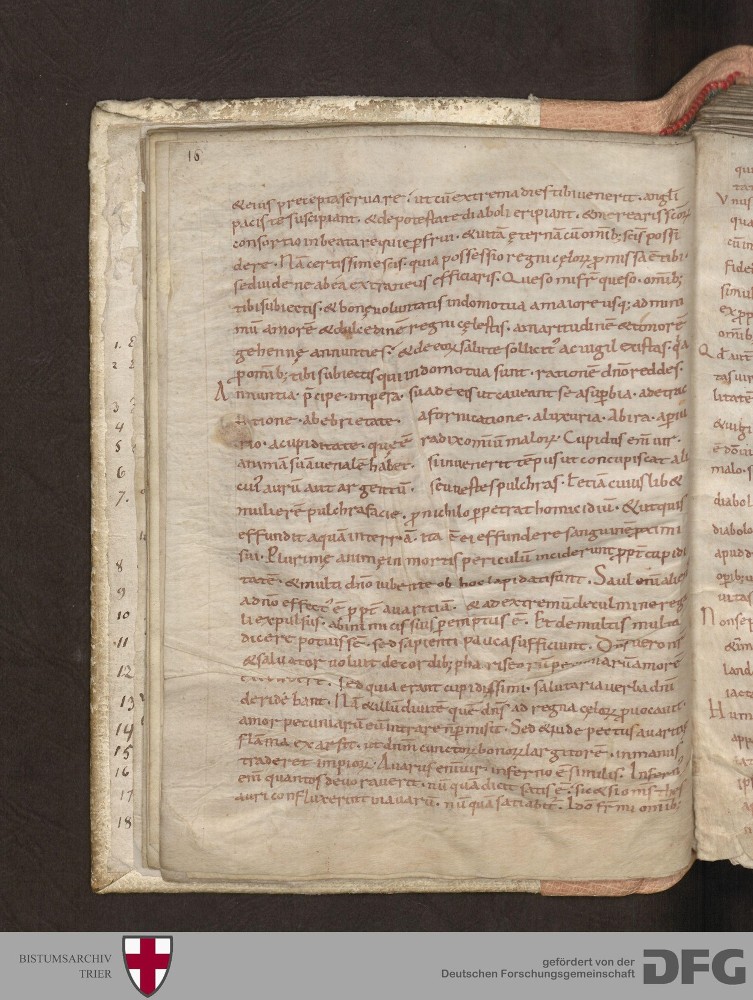 16
&eius precepta seruare. ut cū extrema dies tibi uenerit. angli
pacis te suscipiant. & de potestate diaboli eripiant. &
consortio in beata requie pfrui. & uitā ęternā cū omīb; scīs possi
dere. Nā certissime scis. quia possessio regni cęloꝝ
se diuide ne ab ea extraneus efficiaris. Queso mi fr̄ queso. omīb;
tibi subiectis. & bonę uoluntatis in domo tua a maiore usq; ad mini
mū amorē & dulcedinē regni cęlestis. amaritudinē & timorē
gehennę annunties. & de eoꝝ salute sollicit᾽ ac uigil existas. q̄a
p omīb; tibi subiectis qui in domo tua sunt. rationē dn̄o reddes.
Annuntia. pͥncipe. impera. suade eis ut caueant se a supbia. a detrac
tatione. ab ebrietate. a fornicatione. a luxuria. ab ira. a piu
rio. a cupiditate. quę ē radix omiū maloꝝ. Cupidus em̄ uir.
animā suā uenalē habet. si inuenerit tēpus ut concupiscat ali
cui᾽ aurū aut argentū. seu uestes pulchras. t etiā cuiuslib&
mulierē pulchra facie. p nichilo ppetrat homicidiū. & ut quis
effundit aquā in terrā. ita ē ei effundere sanguinē pximi
sui. Plurimę animę in mortis periculū inciderunt ppt cupidi
tatē. & multi dn̄o iubente ob hoc lapidati sunt. Saul em̄
a dn̄o effect᾽ ē ppt auaritiā. & ad extremū de culmine regā
li expulsus. ab inimicis suis pemptus ē. Et de multis multa
dicere potuissē. sed sapienti pauca sufficiunt. Dn̄s uero nr̄
& saluator uoluit de cordib; phariseorū amorē
sed quia erant cupidissimi. salutaria uerba dn̄i
deridebant. Nā & illū diuitē quē dn̄s ad regna cęloꝝ puocauit
amor pecuniarū eū intrare n̄ pmisit. Sed & iude pectus auaritię
flāma exarsit. ut dn̄m cunctoꝝ bonoꝝ largitorē. in manus
traderet impioꝝ. Auarus em̄ uir. inferno ē similis. Infern᾽
em̄ quantos deuorauerit. nū quā dicit satis ē. sic & si om̄s
auri confluxerint in auarū. nū quā satiabit᾽. Ido fr̄ mi omīb;
1.
2
3
4
5
6
7.
8
9
10
11
12
13
14
15
16
17
18
BISTUMSARCHIV
TRIER
gefördert von der
Deutschen Forschungsgemeinschaft
DFG